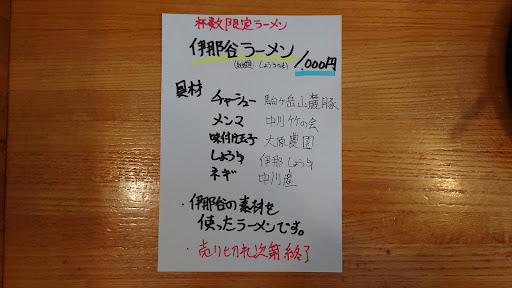 杯数限定ラーメン
伊那谷ラーメン 1,000円
しょうゆ
具材
チャーシュー 駒ヶ岳山麓豚
メンマ 中川竹の会
味付け玉子 大原農園
しょうゆ 伊那しょうゆ
ネギ 中川産
・伊那谷の素材を
使ったラーメンです。
・売り切れ次第終了